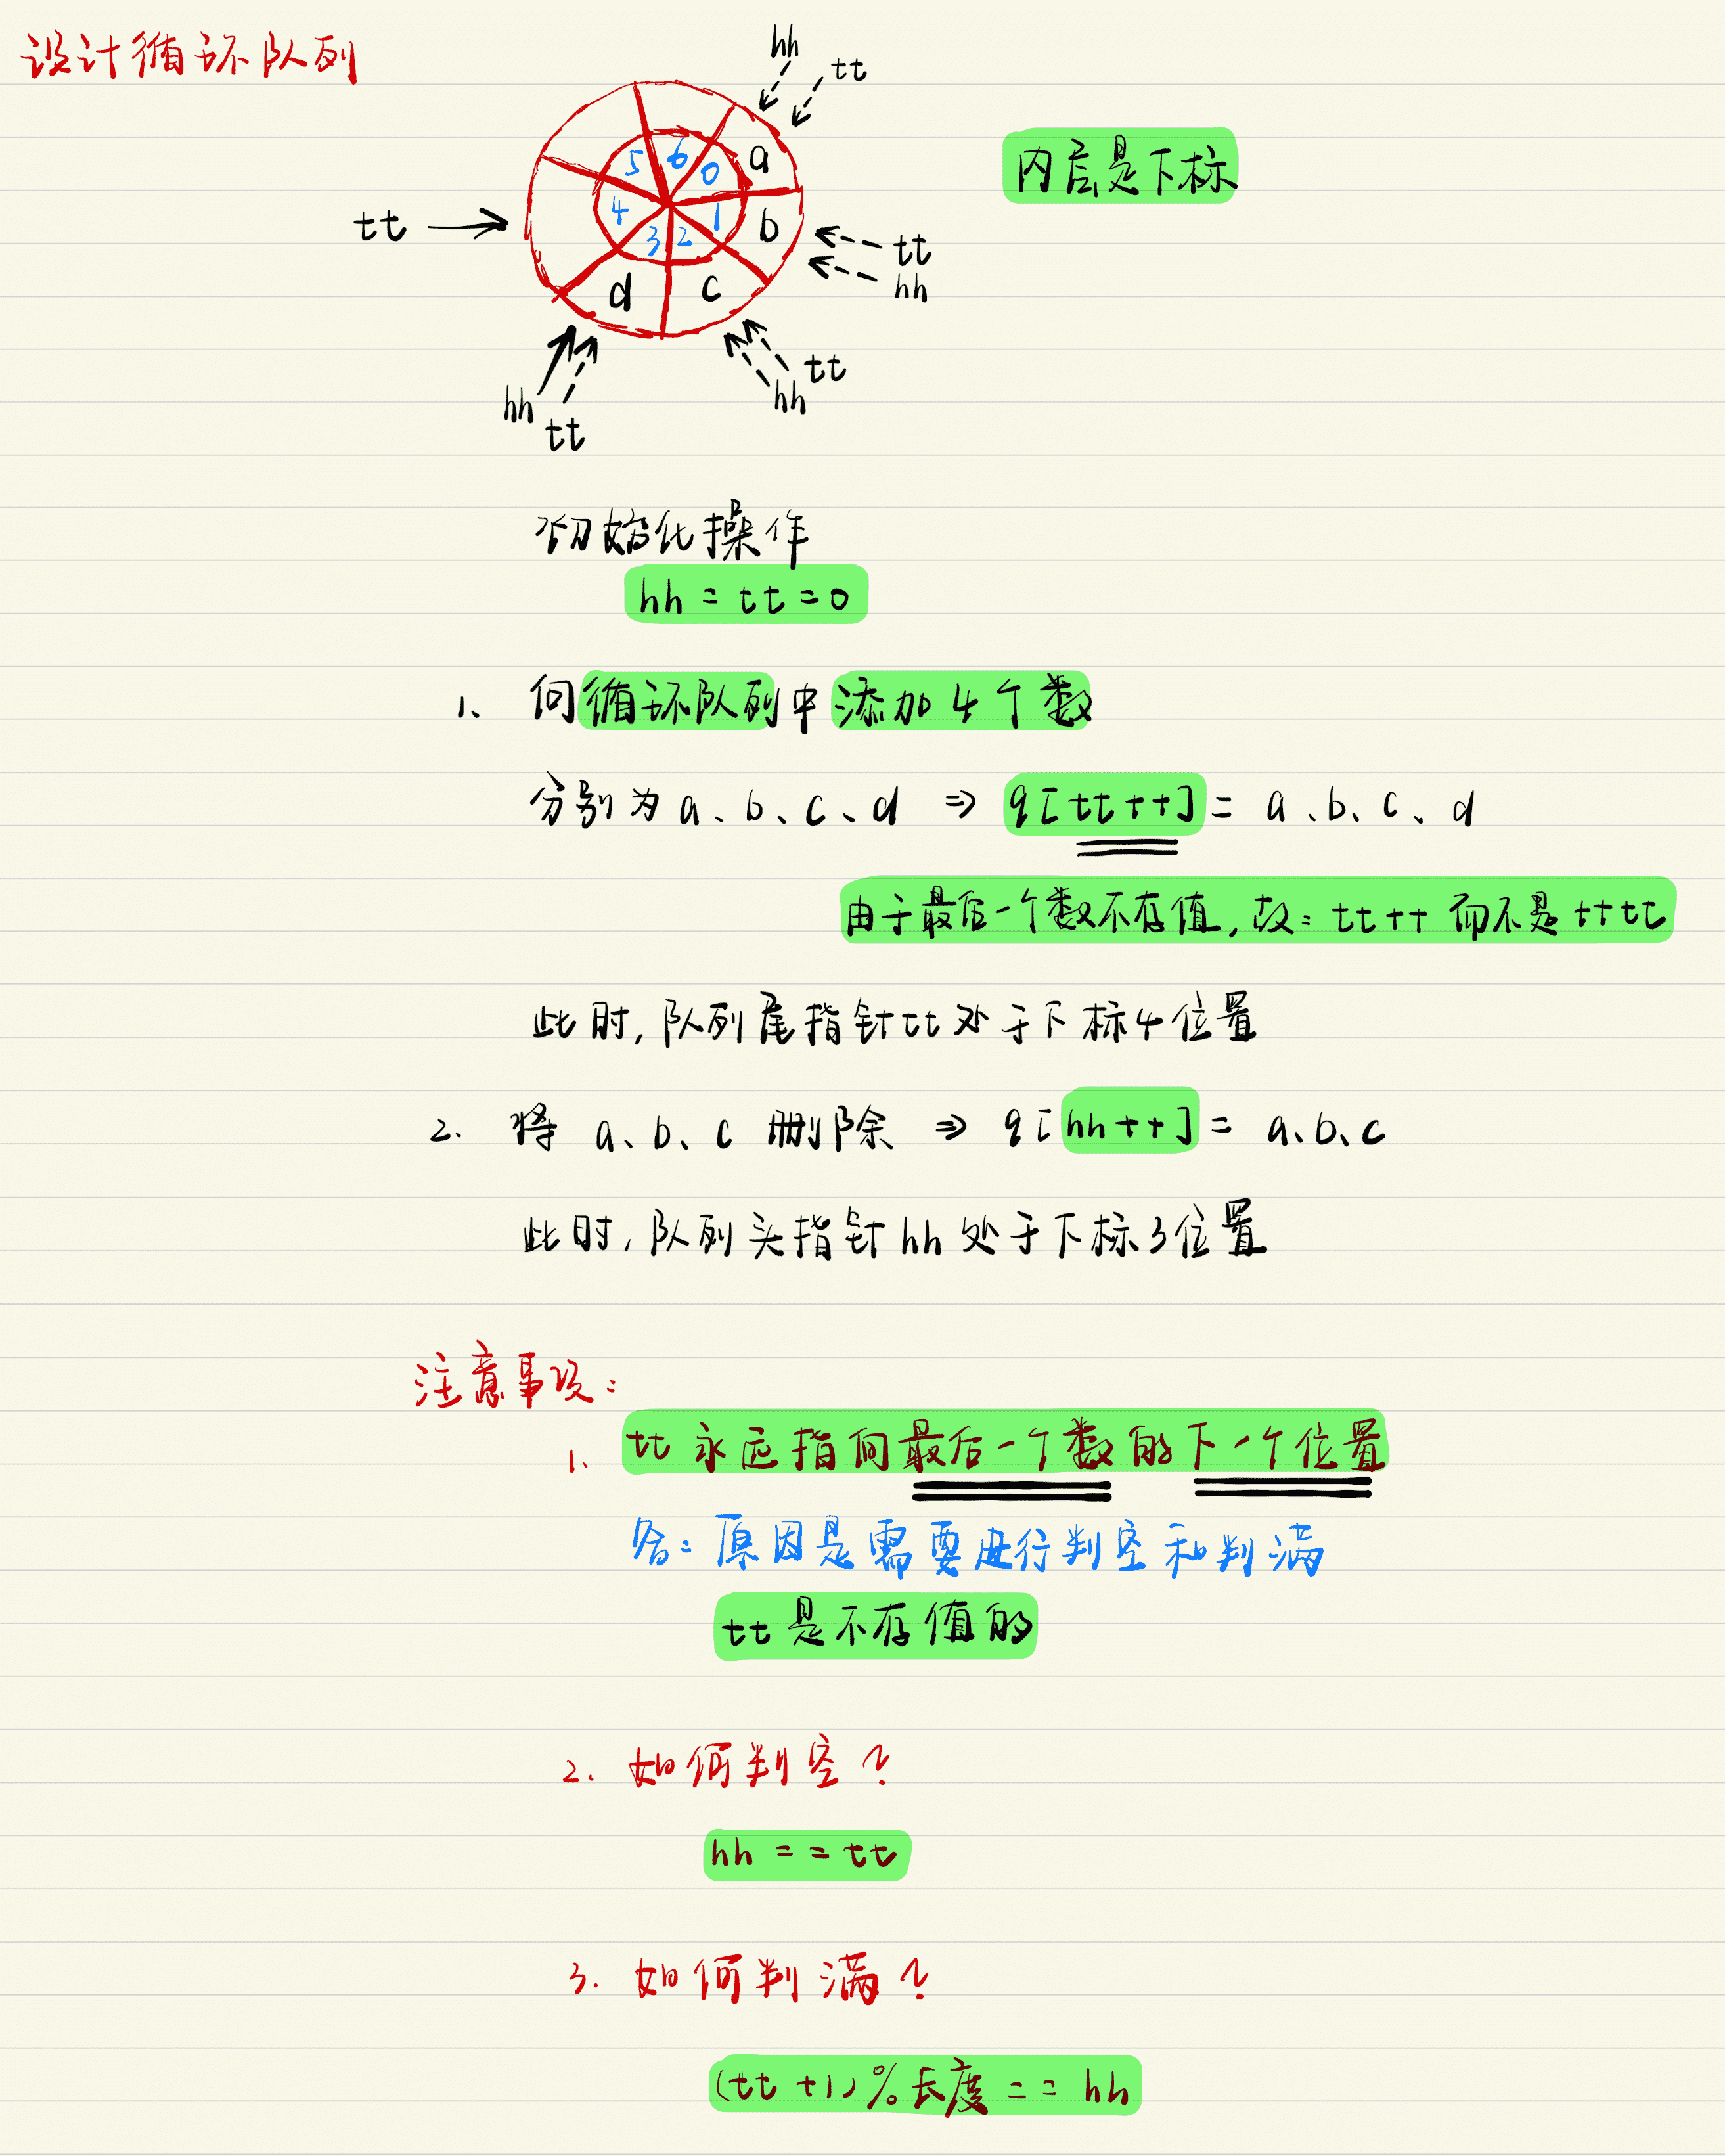 设计循环队列
hh
tt
5 6 0 a
内层是下标
tt
4 1 b
tt
3 2
hh
d c
tt
hh
hh
tt
初始化操作
hh = tt = 0
1、向循环队列中添加4个数
分别为 a、b、c、d ⇒ q[tt++] = a、b、c、d
由于最后一个数不存值,故: tt++ 而不是 ++tt
此时,队列尾指针tt处于下标4位置
2. 将 a、b、c 删除 ⇒ q[hh++] = a、b、c
此时,队列头指针hh处于下标3位置
注意事项:
1、tt永远指向最后一个数的下一个位置
答: 原因是需要进行判空和判满
tt是不存值的
2. 如何判空?
hh == tt
3. 如何判满?
(tt+1)%长度 == hh